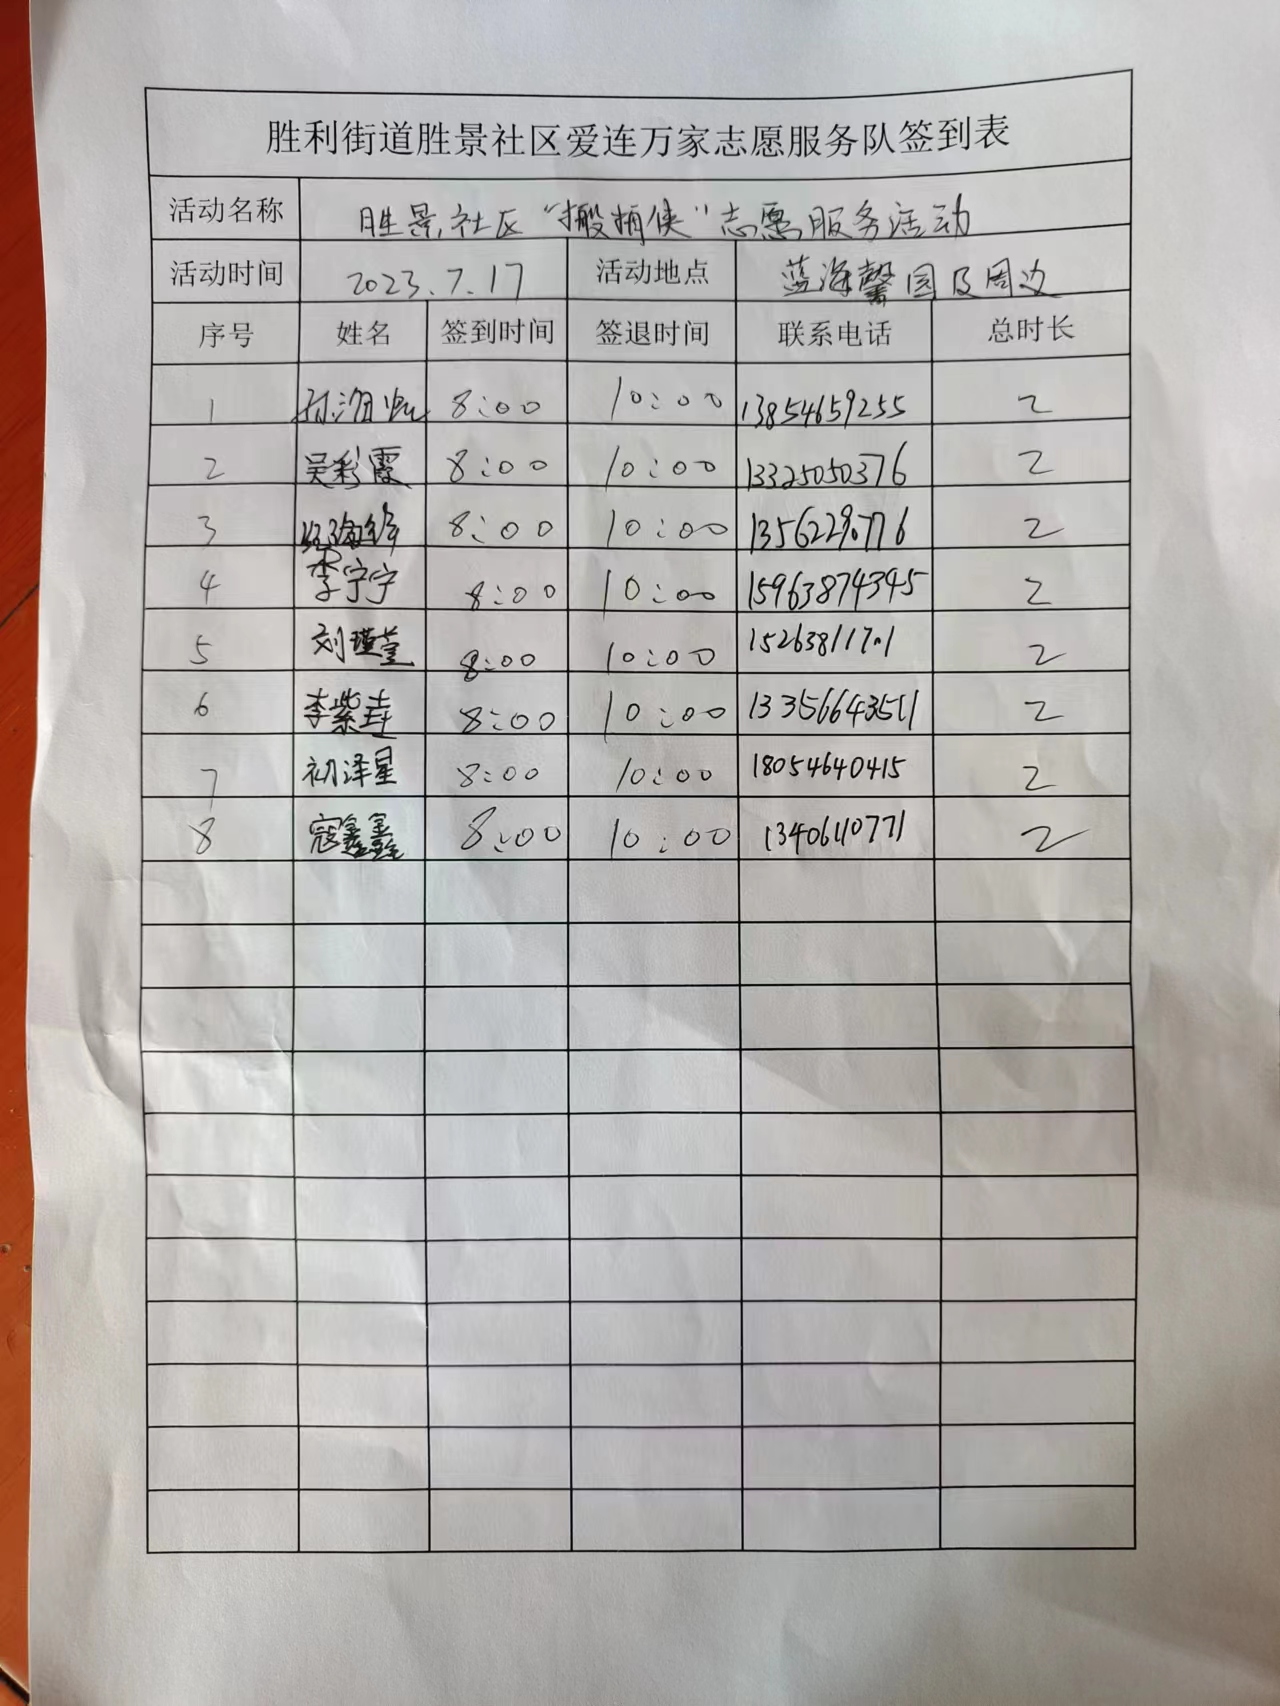 胜利街道胜景社区爱连万家志愿服务队签到表
活动名称 胜景社区“搬捅侠”志愿服务活动
活动时间 2023.7.17 活动地点 蓝海馨园及周边
序号 姓名 签到时间 签退时间 联系电话 总时长
1 8:00 10:00 13854659255 2
2 吴彩霞 8:00 10:00 13325050376 2
3 8:00 10:00 2
4 李宁宁 8:00 10:00 15963874395 2
5 刘瑾萱 8:00 10:00 15263811701 2
6 李紫垚 8:00 10:00 13356643511 2
7 初泽星 8:00 10:00 18054640415 2
8 寇鑫鑫 8:00 10:00 13406110771 2